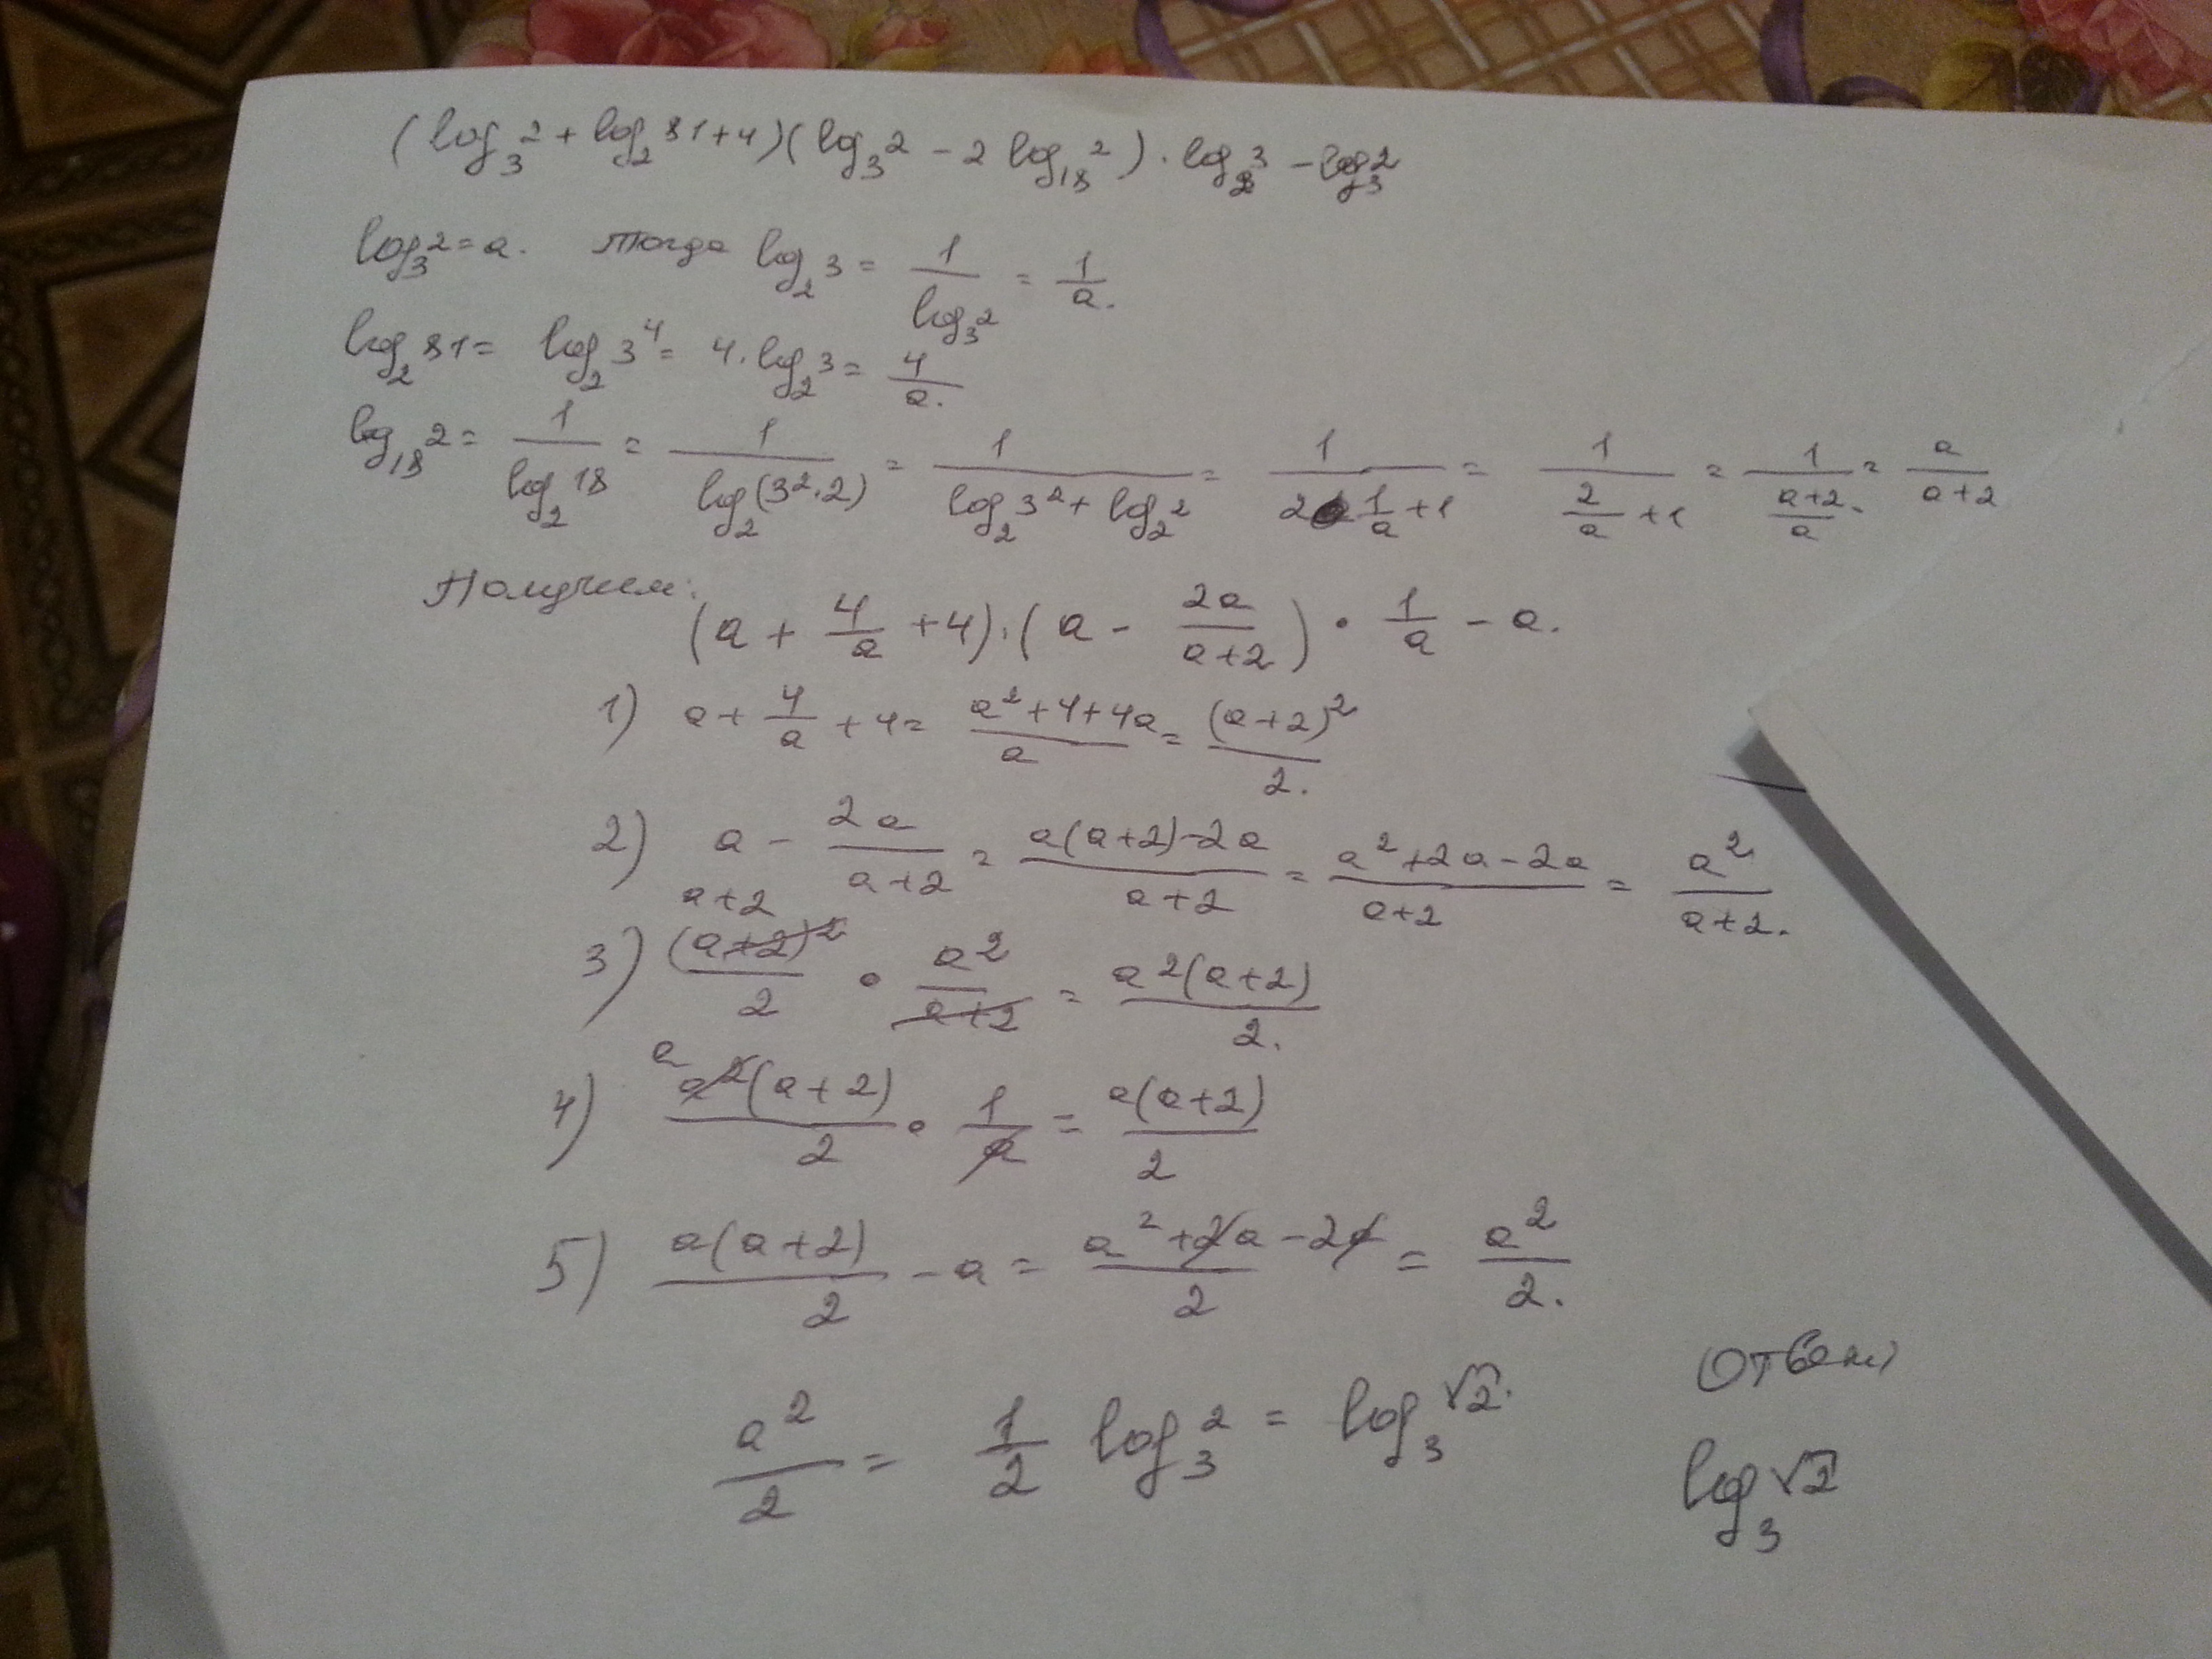 (log₃2 + log₂81+4)(log₃2 - 2 log₁₈2) · log₂3 - log₃2
log₃2 = a. тогда log₂3 = 1/log₃2 = 1/a.
log₂81 = log₂3⁴ = 4·log₂3 = 4/a.
log₁₈2 = 1/log₂18 = 1/log₂(3²·2) = 1/(log₂3² + log₂2) = 1/(2·1/a + 1) = 1/(2/a + 1) = 1/((a+2)/a) = a/(a+2)
Получим:
(a + 4/a + 4)·(a - 2a/(a+2)) · 1/a - a.
1) a + 4/a + 4 = (a²+4+4a)/a = (a+2)²/2.
2) a - 2a/(a+2) = (a(a+2)-2a)/(a+2) = (a²+2a-2a)/(a+2) = a²/(a+2).
a+2
3) (a+2)²/2 · a²/(a+2) = a²(a+2)/2.
a
4) a²(a+2)/2 · 1/a = a(a+2)/2
5) a(a+2)/2 - a = (a²+2a-2a)/2 = a²/2.
a²/2 = 1/2 log₃2 = log₃√2.
Ответ
log₃√2